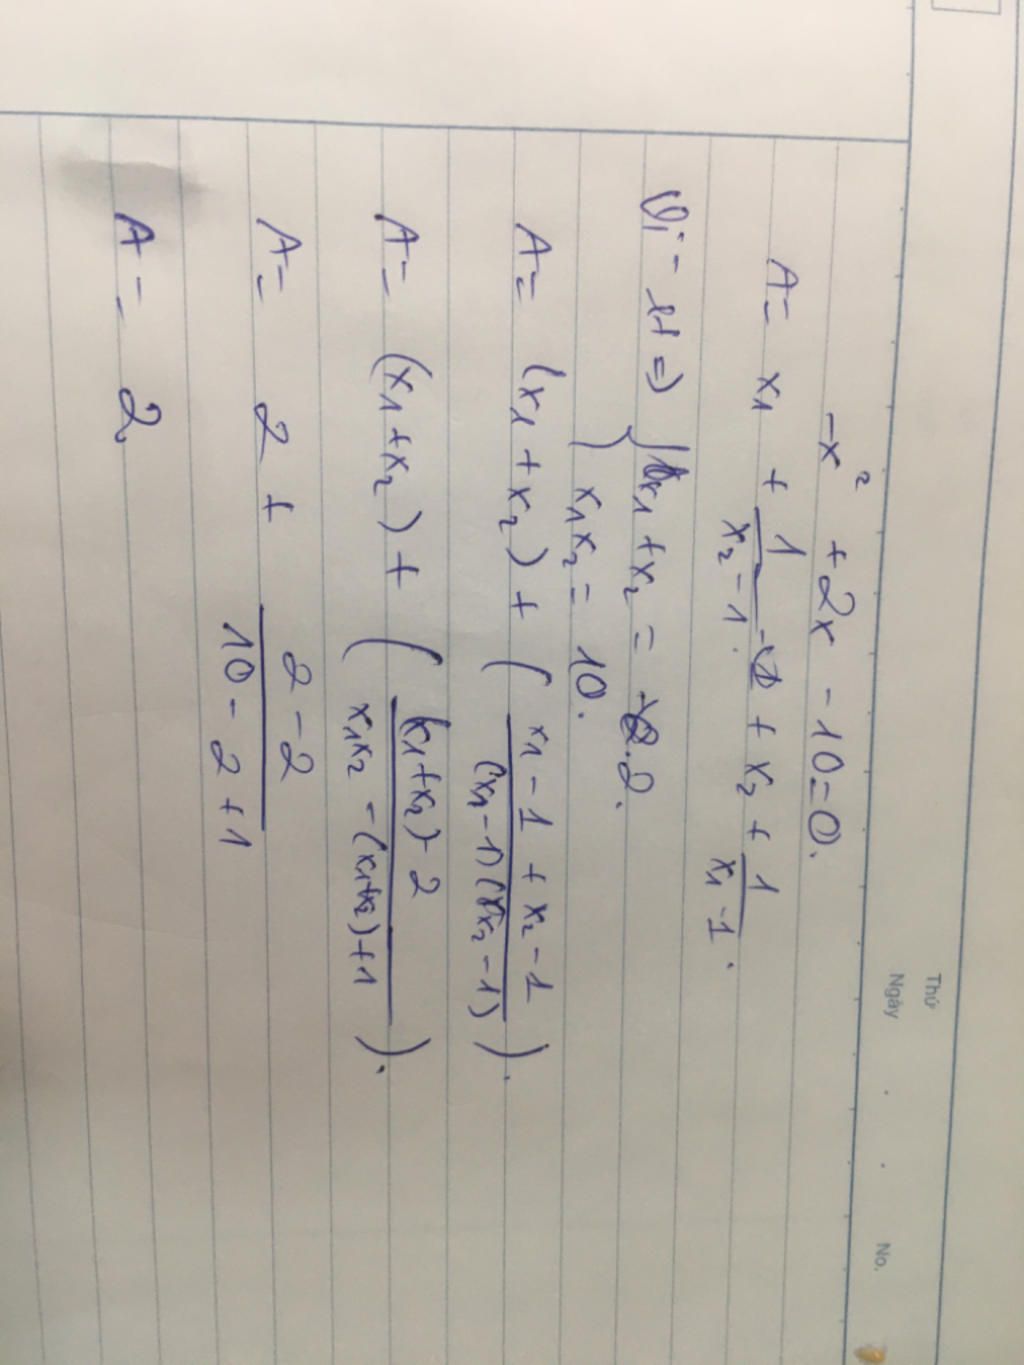 Thứ
Ngày . . No.
-x² + 2x - 10 = 0.
A = x₁ + 1/(x₂ - 1) + x₂ + 1/(x₁ - 1).
Vi-et => { x₁ + x₂ = 2.
x₁x₂ = 10.
A = (x₁ + x₂) + ( (x₁ - 1 + x₂ - 1)/((x₁ - 1)(x₂ - 1)) ).
A = (x₁ + x₂) + ( ((x₁ + x₂) - 2)/(x₁x₂ - (x₁ + x₂) + 1) ).
A = 2 + (2 - 2)/(10 - 2 + 1)
A = 2.